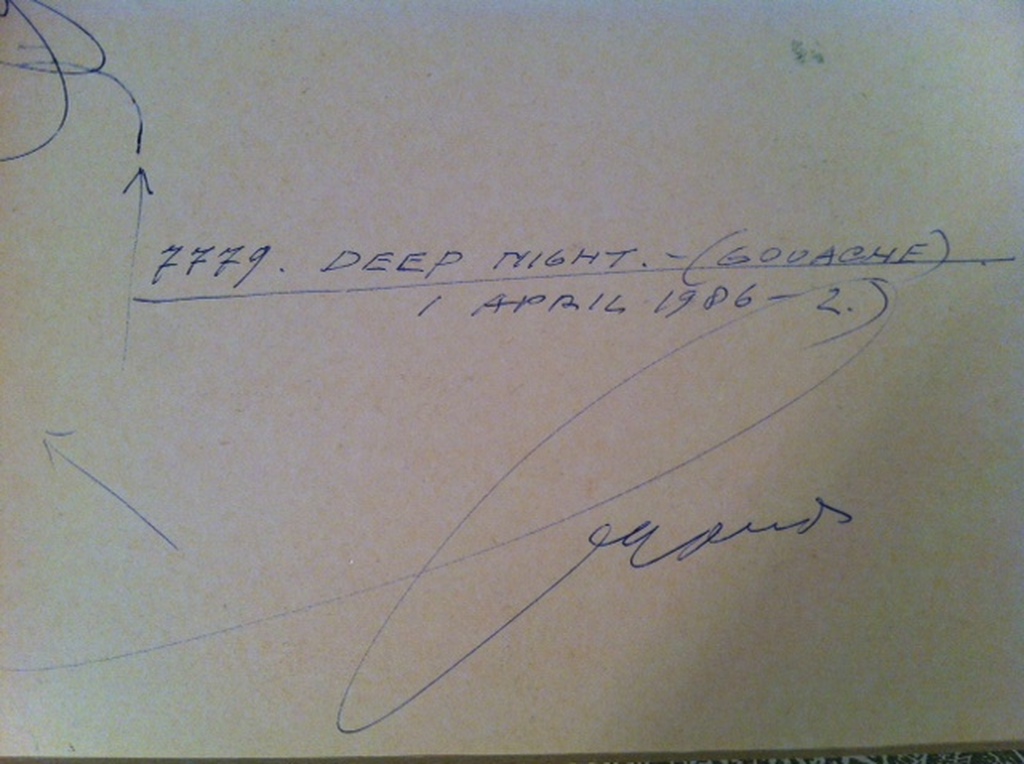 7779. DEEP NIGHT. - (GOUACHE) .
1 APRIL 1986 - 2.)